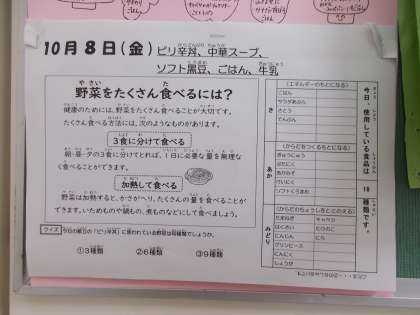 10月8日(金)ピリ辛丼、中華スープ、
ソフト黒豆、ごはん、牛乳
野菜をたくさん食べるには?
健康のためには、野菜をたくさん食べることが大切です。
たくさん食べる方法には、次のようなものがあります。
3食に分けて食べる
朝・昼・夕の3食に分けてとれば、1日に必要な量を無理な
く食べることができます。
加熱して食べる
野菜は加熱すると、かさがへり、たくさんの量を食べることが
できます。いためものや鍋もの、煮ものなどにして食べましょう。
クイズ 今日の献立の「ピリ辛丼」に使われている野菜は何種類でしょうか。
①3種類 ②6種類 ③9種類
今日、使用している食品は 18 種類です。
き
(エネルギーのもとになる)
ごはん
サラダあぶら
さとう
でんぷん
あか
(からだをつくるもとになる)
ぎゅうにゅう
ぶたにく
とりにく
ソフトくろまめ
みどり
(からだのちょうしをととのえる)
たまねぎ キャベツ
はくさい たけのこ
にんじん にら
グリンピース
にんにく
しょうが